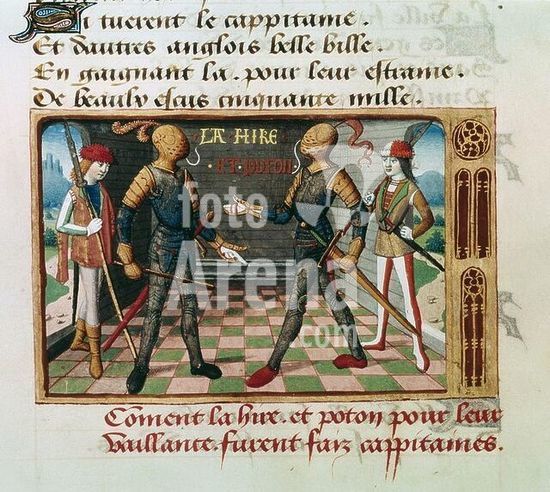 Si tuerent le cappitaine.
Et dautres anglois belle bille.
En gaignant la. pour leur estraine.
De beaulx escus cinquante mille.
LA HIRE
ET POTON
foto
Arena
.com
Coment la hire. et poton pour leur
vaillance. furent faiz cappitaines.